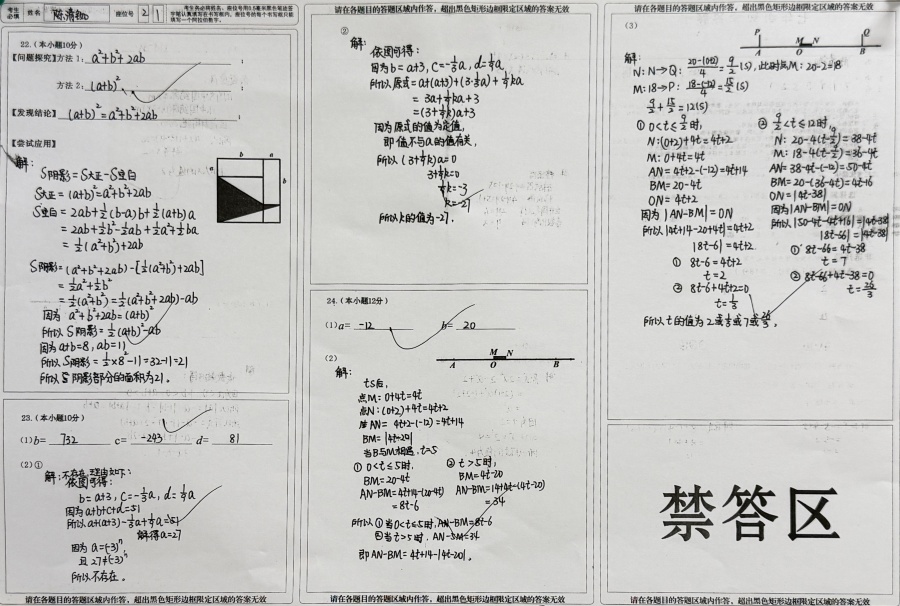 考生必填
姓名
陈清
座位号
2
1
考生务必将姓名、座位号用0.5毫米黑色签字笔认真填写在书写框内，座位号的每个书写框只能填写一个阿拉伯数字。
22.（本小题10分）
【问题探究】方法1：a²+b²+2ab；
方法2：(a+b)²；
【发现结论】(a+b)²=a²+b²+2ab
【尝试应用】
解：
S阴影=S大正-S空白
S大正=(a+b)²=a²+b²+2ab
S空白=2ab+½(b-a)b+½(a+b)a
=2ab+½b²-½ab+½a²+½ba
=½(a²+b²)+2ab
S阴影=(a²+b²+2ab)-[½(a²+b²)+2ab]
=½a²+½b²
=½(a²+b²)=½(a²+b²+2ab)-ab
因为 a²+b²+2ab=(a+b)²
所以S阴影=½(a+b)²-ab
因为a+b=8，ab=11
所以S阴影=½×8²-11=32-11=21
所以S阴影部分的面积为21。
b
a
a
b
23.（本小题10分）
(1)b= 732 c= -243 d= 81
(2)①
解：不存在，理由如下：
依图可得：
b=a+3，c=-⅓a，d=1/9a
因为a+b+c+d=51
解得a=27
因为a=(-3)ⁿ
且27≠(-3)ⁿ
所以不存在。
请在各题目的答题区域内作答，超出黑色矩形边框限定区域的答案无效
请在各题目的答题区域内作答，超出黑色矩形边框限定区域的答案无效
②
解：
依图可得：
因为b=a+3，c=-⅓a，d=1/9a
=(3+1/9k)a+3
因为原式的值为定值，
即值不与a的值有关，
所以(3+1/9k)a=0
3+1/9k=0
1/9k=-3
所以k的值为-27。
24.（本小题12分）
(1)a= -12 b= 20
(2)
A
M
O
N
B
解：
tS后，
点M：0+4t=4t
点N：(0+2)+4t=4t+2
AN=4t+2-(-12)=4t+14
BM=|4t-20|
当B与M相遇，t=5
①0<t≤5时，
BM=20-4t
AN-BM=4t+14-(20-4t)
=8t-6
②t>5时，
BM=4t-20
AN-BM=14+4t-(4t-20)
=34
所以①当0<t≤5时，AN-BM=8t-6
②当t>5时，AN-BM=34
即AN-BM=4t+14-|4t-20|。
请在各题目的答题区域内作答，超出黑色矩形边框限定区域的答案无效
请在各题目的答题区域内作答，超出黑色矩形边框限定区域的答案无效
(3)
P
A
M
O
N
Q
B
解：
N：N→Q：20-(0+2)/4=9/2(S)，此时点M：20-2=18
M：18→P：18-(-12)/4=15/2(S)
9/2+15/2=12(S)
①0<t≤9/2时，
N：(0+2)+4t=4t+2
M：0+4t=4t
AN=4t+2-(-12)=4t+14
BM=20-4t
ON=4t+2
因为|AN-BM|=ON
所以|4t+14-20+4t|=4t+2
|8t-6|=4t+2
①8t-6=4t+2
t=2
②8t-6+4t+2=0
t=⅓
②9/2<t≤12时，
N：20-4(t-9/2)=38-4t
M：18-4(t-9/2)=36-4t
AN=38-4t-(-12)=50-4t
BM=20-(36-4t)=4t-16
ON=|4t-38|
因为|AN-BM|=ON
所以|50-4t-4t+16|=|4t-38|
|8t-66|=|4t-38|
①8t-66=4t-38
t=7
②8t-66+4t-38=0
t=26/3
所以t的值为2或⅓或7或26/3。
禁答区
请在各题目的答题区域内作答，超出黑色矩形边框限定区域的答案无效